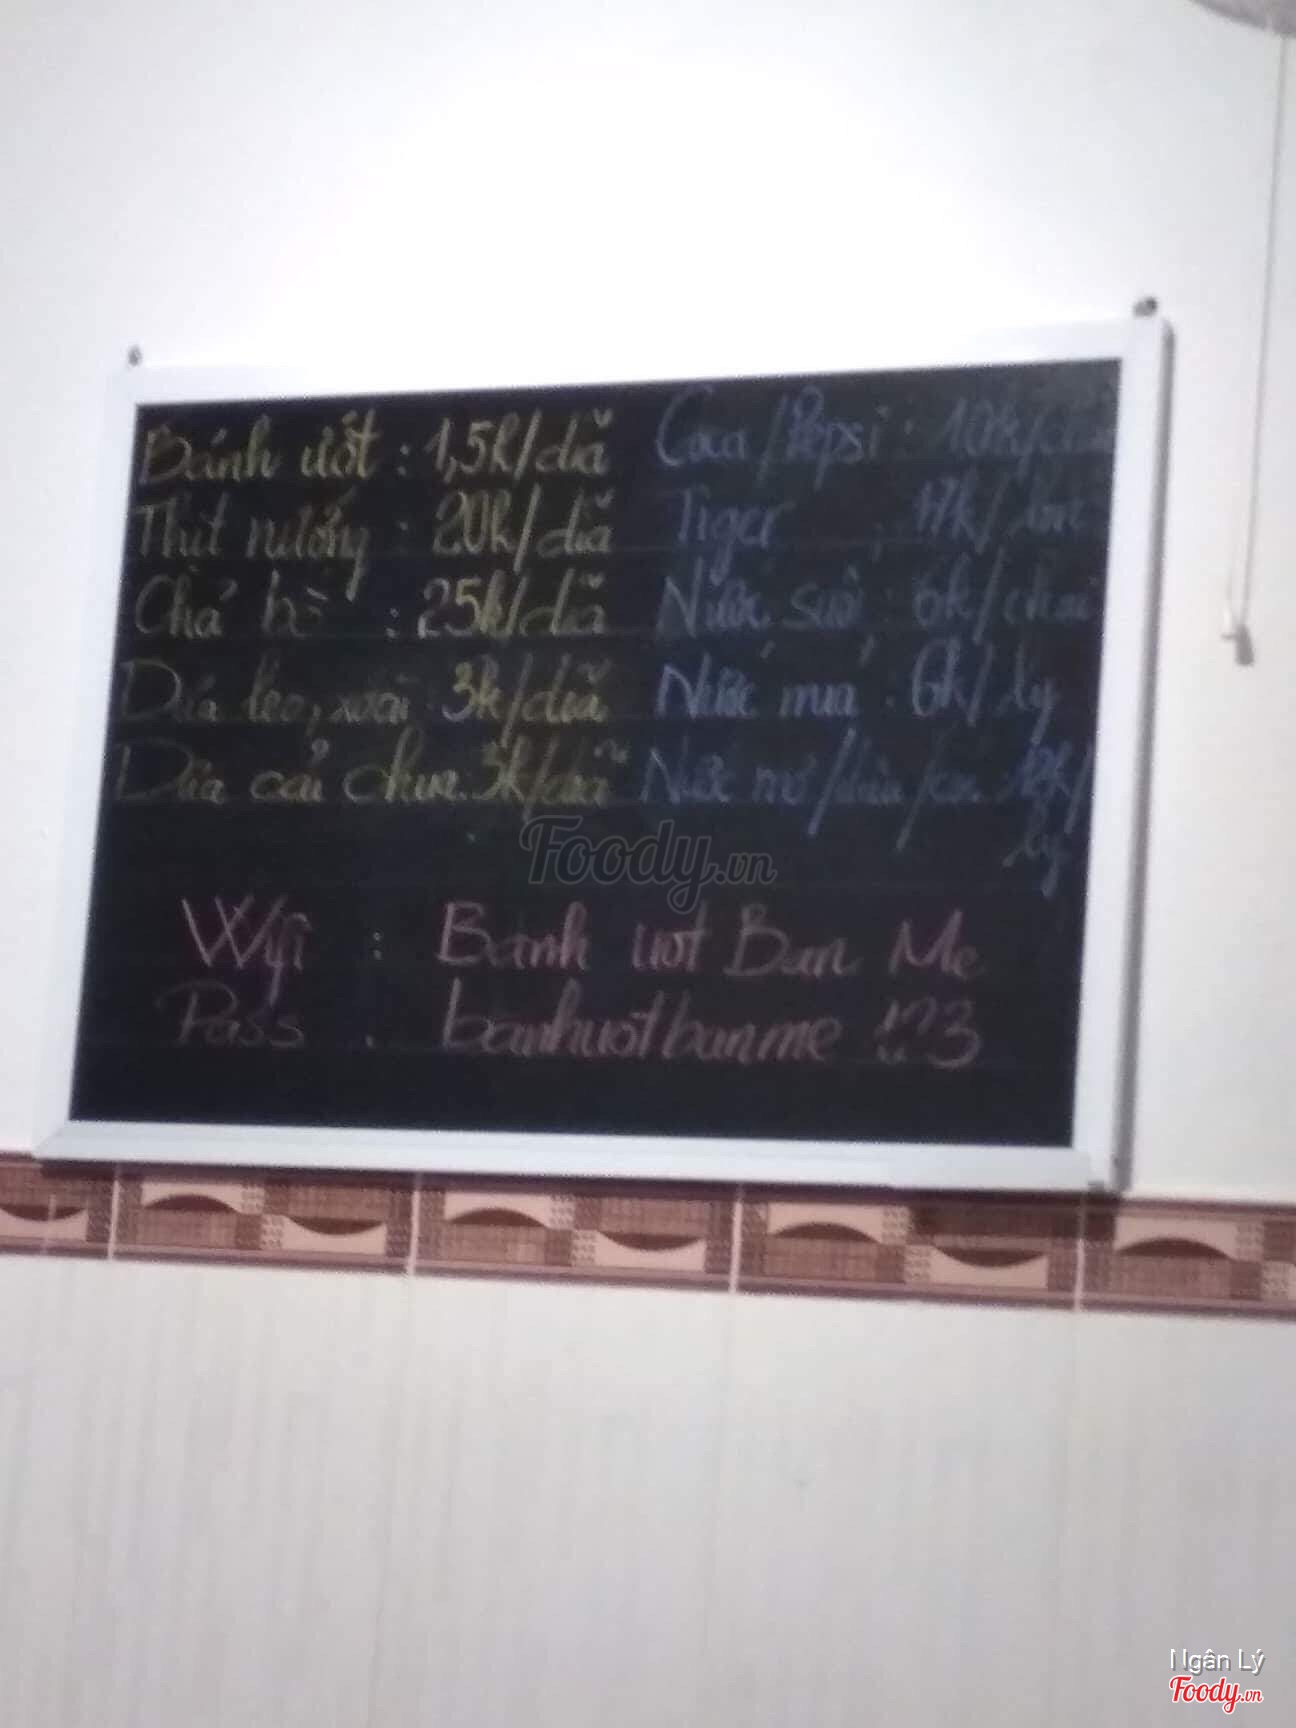 Bánh ướt : 1,5k/dĩa
Thịt nướng : 20k/dĩa
Chả bò : 25k/dĩa
Dưa leo, xoài 3k/dĩa
Dưa cải chua: 3k/dĩa
Coca/Pepsi : /
Tiger : 17k/lon
Nước suối : 6k/chai
Nước mía : 6k/ly
Nước mơ/ / : 12k/
ly
Wifi : Banh uot Ban Me
Pass : banhuotbanme 123
Foody.vn
Ngân Lý
Foody.vn